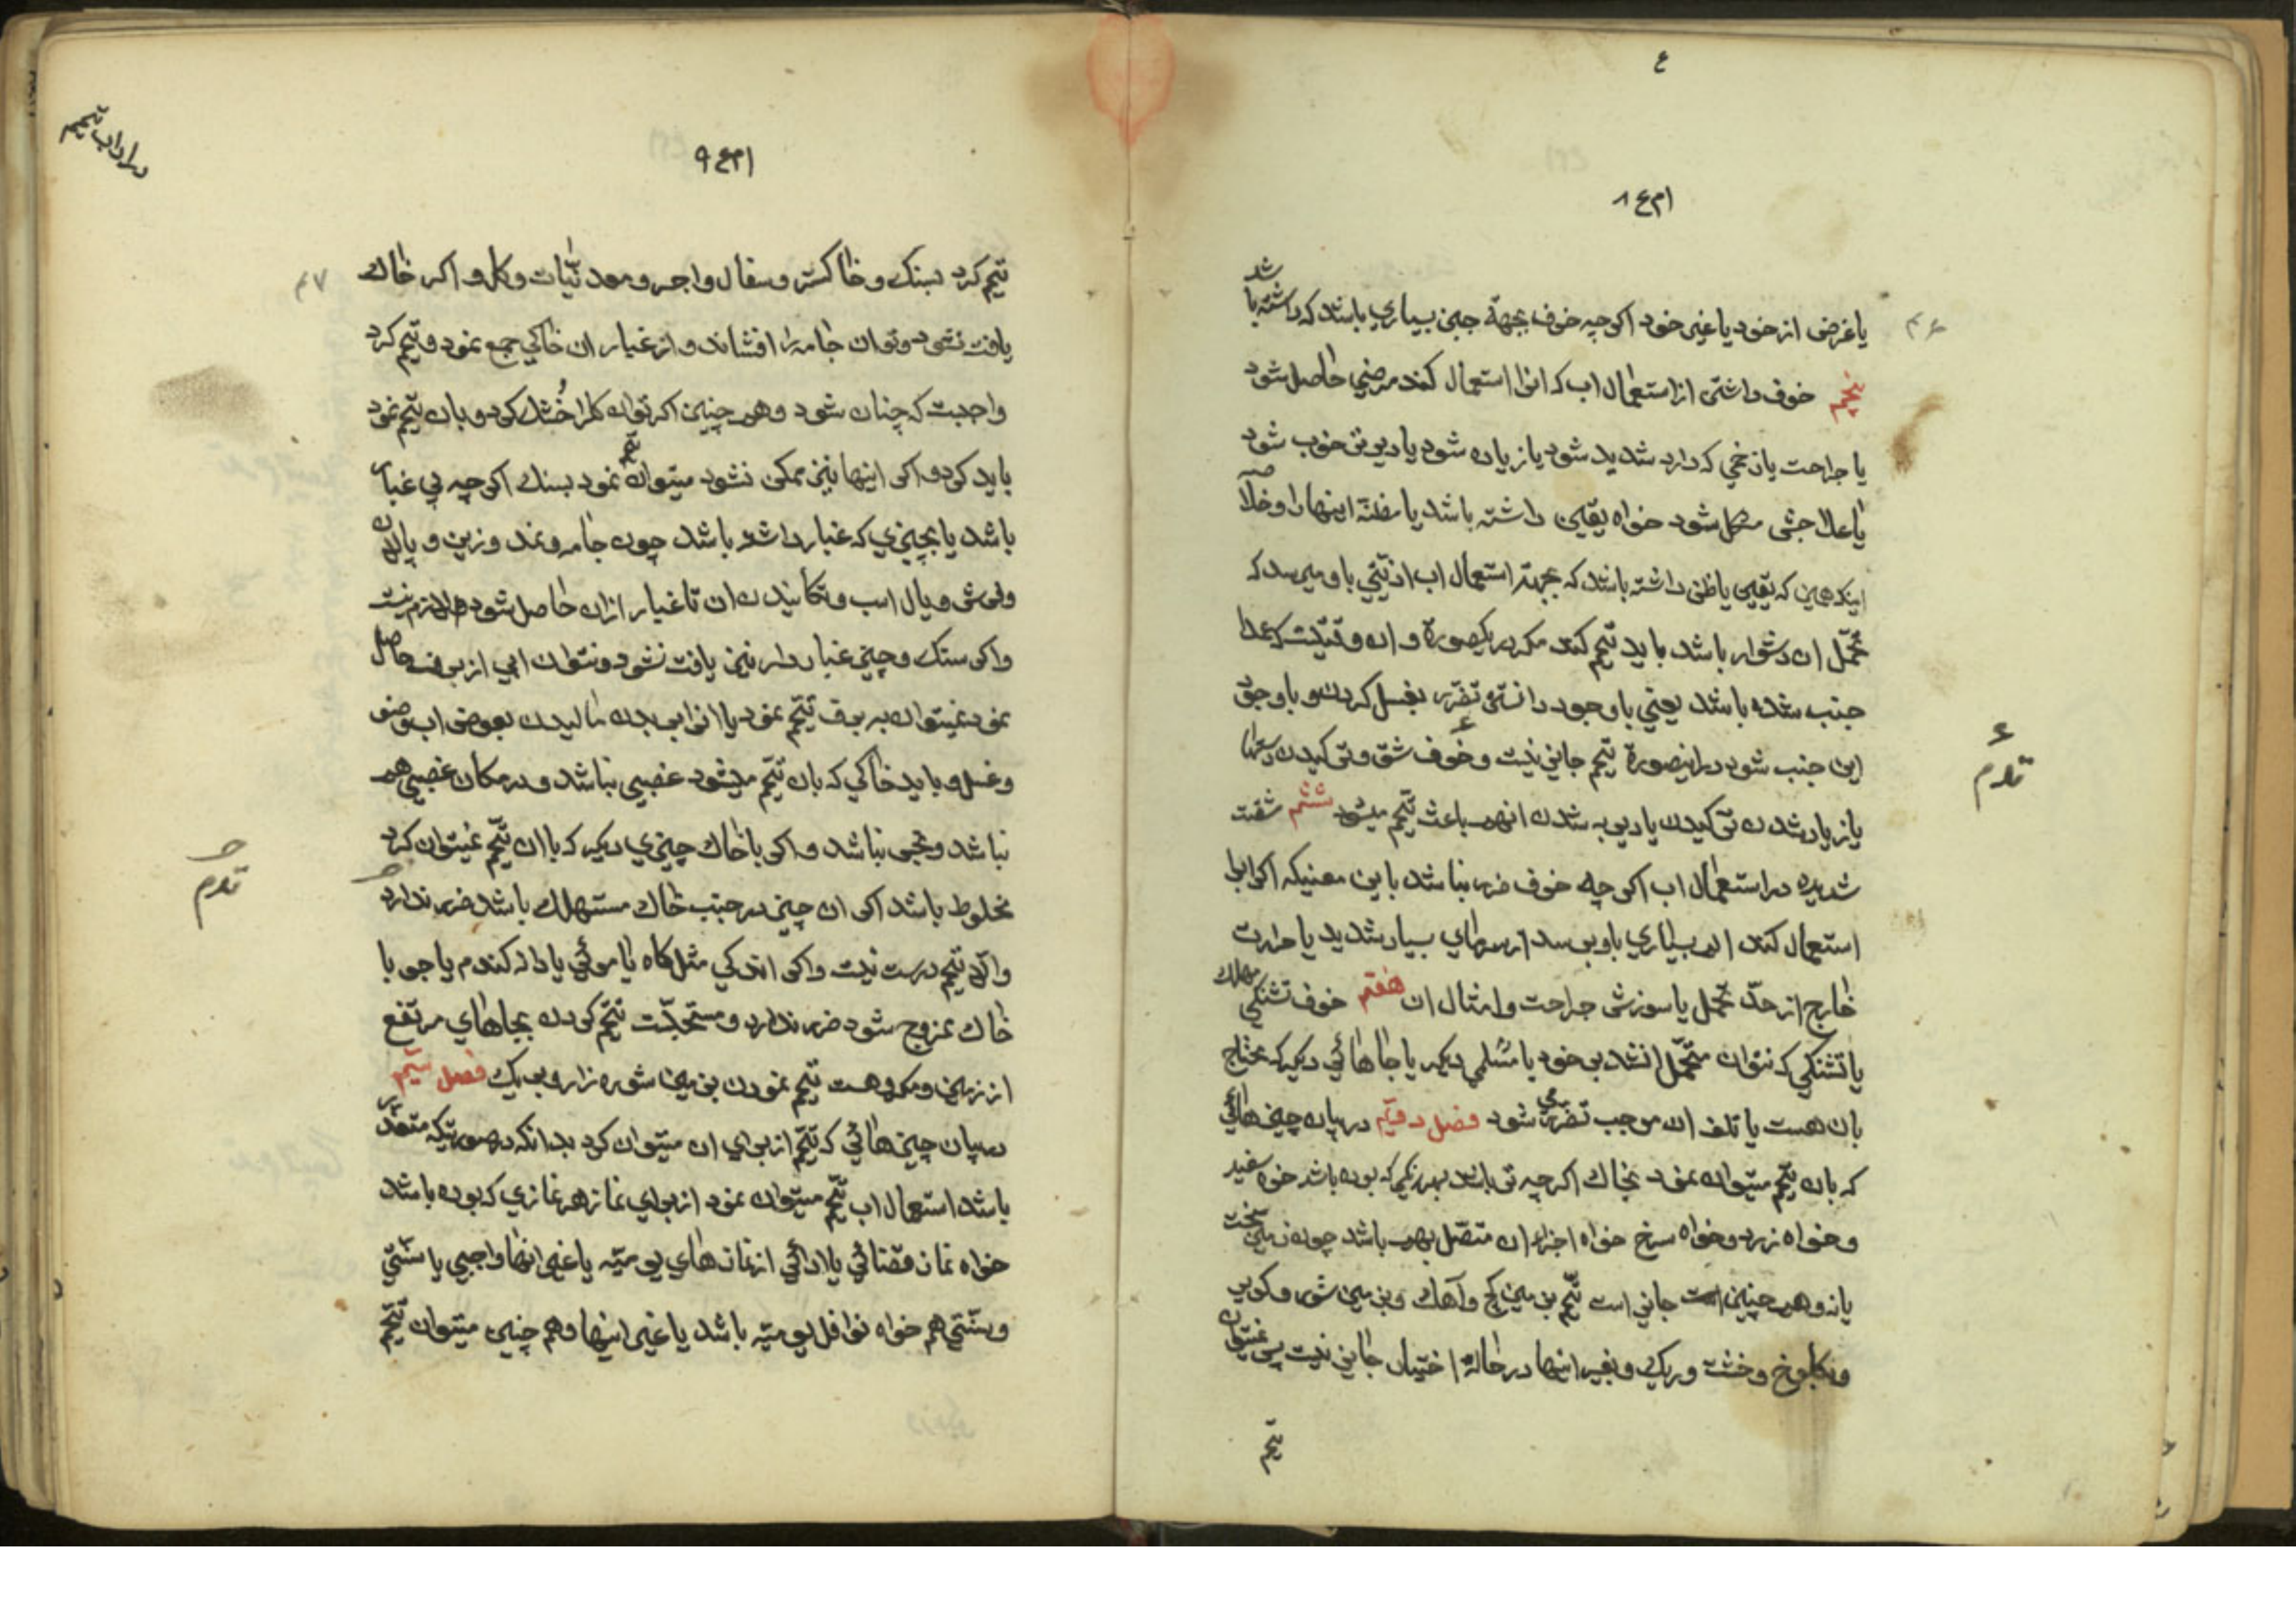 ع
یا غرضی از خود یا غیر خود اکرچه خوف بجهة جبن بسیاری باشد که داشته باشد
پنجم خوف داشتن از استعمال اب که اکر انرا استعمال کند مرضی حاصل شود
یا جراحت یا زخمی که دارد شدید شود یا زیاده شود یا دیرتر خوب شود
یا علاجش مشکل شود خواه یقین داشته باشد یا مظنه اینها را و خلاصه
اینکه همین که یقین یا ظن داشته باشد که بجهة استعمال اب اذیتی باو میرسد که
تحمل ان دشوار باشد باید تیمم کند مکر در یکصورة و ان وقتیست که عمدا
جنب شده باشد یعنی با وجود دانستن تضرر بغسل کردن و با وجود
این جنب شود در اینصورة تیمم جایز نیست و خوف شق و ترکیدن دستها
یا زیاد شدن ترکیدن یا دیر به شدن انهم باعث تیمم میشود ششم مشقت
شدیده در استعمال اب اکرچه خوف ضرر نباشد باین معنیکه اکر ابرا
استعمال کند الم بسیاری باو برسد از سرمای بسیار شدید یا حرارت
خارج از حد تحمل یا سوزش جراحت و امثال ان هفتم خوف تشنکی مهلک
یا تشنکی که نتوان متحمل انشد بر خود یا مسلمی دیکر یا جاهائی دیکر که محتاج
بان هست یا تلف ان موجب تضرر شود فصل دوم در بیان چیزهائی
که بان تیمم میتوان نمود بخاک اکرچه تر باشد بهر رنکی که بوده باشد خواه سفید
و خواه زرد و خواه سرخ خواه اجزاء ان متصل بهم باشد چون زمین سخت
یا نه و همچنین است جایز است تیمم بزمین کچ و آهک و بزمین شوره و کویر
و بکلوخ و خشت و ریک و بغیر اینها در حالة اختیار جایز نیست پس نمیتوان
تیمم
در اداب تیمم
تیمم کرد بسنک و خاکستر و سفال و اجر و معدنیات و کل و اکر خاک
یافت نشود و توان جامه را افشاند و از غبار ان خاکی جمع نمود و تیمم کرد
واجبست که چنان شود و همچنین اکر توان کل را خشک کرد و بان تیمم نمود
باید کرد و اکر اینها نیز ممکن نشود میتوان تیمم نمود بسنک اکرچه بی غبار
باشد یا بچیزی که غبار داشته باشد چون جامه و نمد و زین و پالان
و فرش و یال اسب و تکانیدن ان تا غبار از ان حاصل شود لازم نیست
و اکر سنک و چیز غبار دار نیز یافت نشود و نتوان ابی از برف حاصل
نمود نمیتوان به برف تیمم نمود یا انرا بر بدن مالیدن بعوض اب وضو
و غسل و باید خاکی که بان تیمم میشود غصبی نباشد و در مکان غصبی هم
نباشد و نجس نباشد و اکر با خاک چیزی دیکر که با ان تیمم نمیتوان کرد
مخلوط باشد اکر ان چیز در جنب خاک مستهلک باشد ضرر ندارد
والا تیمم درست نیست و اکر اندکی مثل کاه یا موئی یا دانه کندم یا جو با
خاک ممزوج شود ضرر ندارد و مستحبست تیمم کردن بجاهای مرتفع
از زمین و مکروهست تیمم نمودن بزمین شوره زار و بریک فصل سیم
در بیان چیزهائی که تیمم از برای ان میتوان کرد بدانکه در صورتیکه متعذر
باشد استعمال اب تیمم میتوان نمود از برای نماز هر نمازی که بوده باشد
خواه نماز قضائی یا ادائی از نمازهای یومیه یا غیر انها واجبی یا سنتی
و سنتی هم خواه نوافل یومیه باشد یا غیر اینها و هم چنین میتوان تیمم